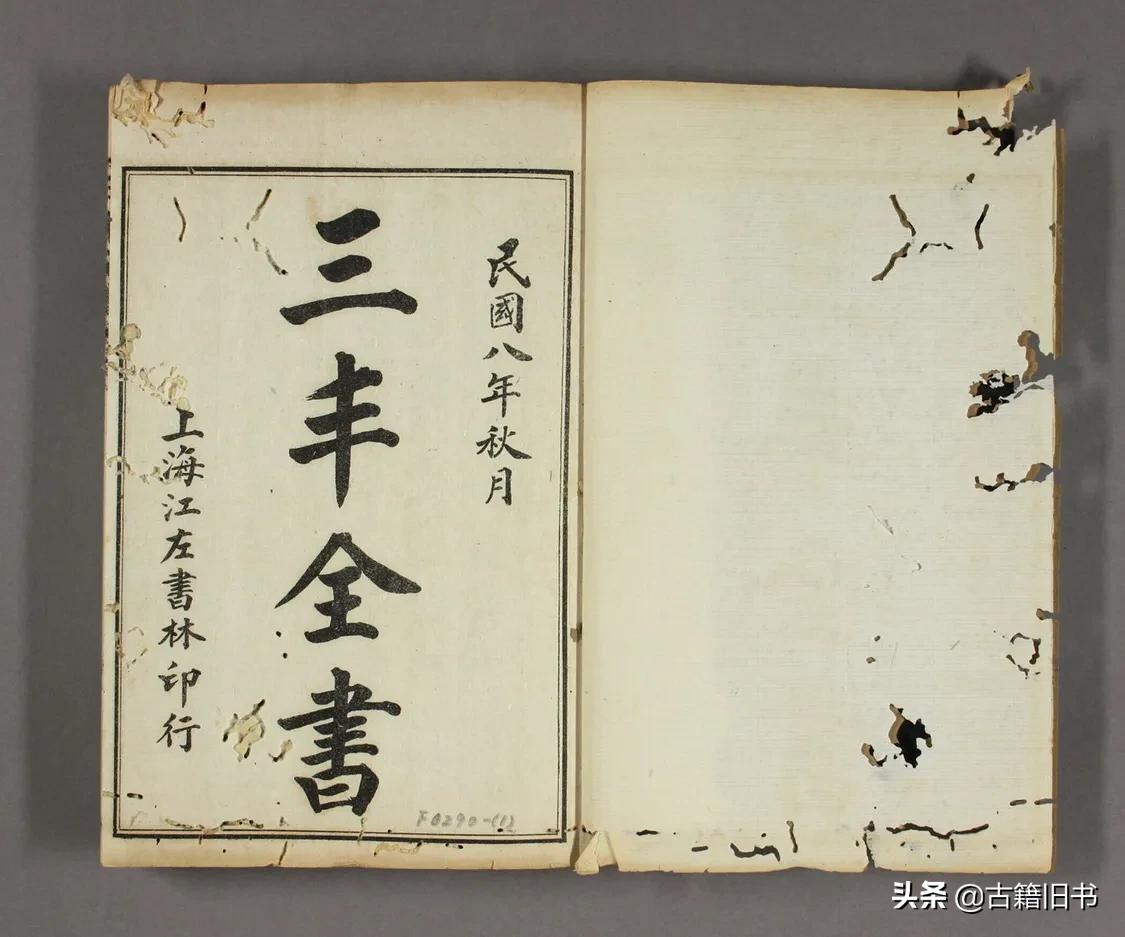 民國八年秋月
三丰全書
上海江左書林印行
F0290-(1)
头条 @古籍旧书